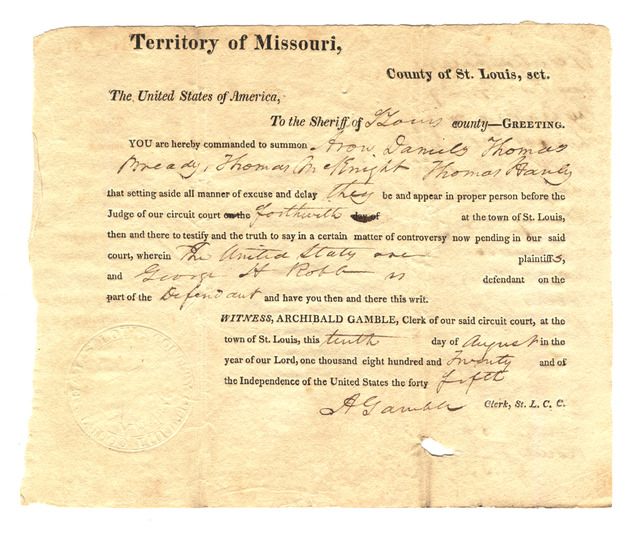 Territory of Missouri,
County of St. Louis, sct.
The United States of America,
To the Sheriff of St Louis county—GREETING.
YOU are hereby commanded to summon Aron Daniels Thomas
Bready, Thomas McKnight Thomas Hanly
that setting aside all manner of excuse and delay they be and appear in proper person before the
Judge of our circuit court on the forthwith day of at the town of St. Louis,
then and there to testify and the truth to say in a certain matter of controversy now pending in our said
court, wherein The United States are plaintiffs,
and George H Robb is defendant on the
part of the Defendant and have you then and there this writ.
WITNESS, ARCHIBALD GAMBLE, Clerk of our said circuit court, at the
town of St. Louis, this tenth day of August in the
year of our Lord, one thousand eight hundred and Twenty and of
the Independence of the United States the forty fifth
A Gamble Clerk, St. L. C. C.